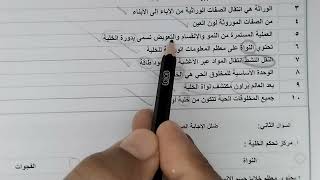 الوراثة هي انتقال الصفات الوراثية من الآباء إلى الأبناء
من الصفات الموروثة لون العين ٤
العملية المستمرة من النمو والانقسام والتعويض تسمى بدورة الخلية ٥
تحتوي النواة على معظم المعلومات الوراثية للخلية ٦
النقل النشط انتقال المواد عبر الأغشية طاقة ٧
الوحدة الأساسية للمخلوق الحي هي ٨
يعد العالم براون مكتشف نواة الخلية ٩
جميع المخلوقات الحية تتكون من خلية ١٠
السؤال الثاني: ضللي الإجابة
١ مركز تحكم الخلية :
النواة
الفجوات
يحتوي معظم